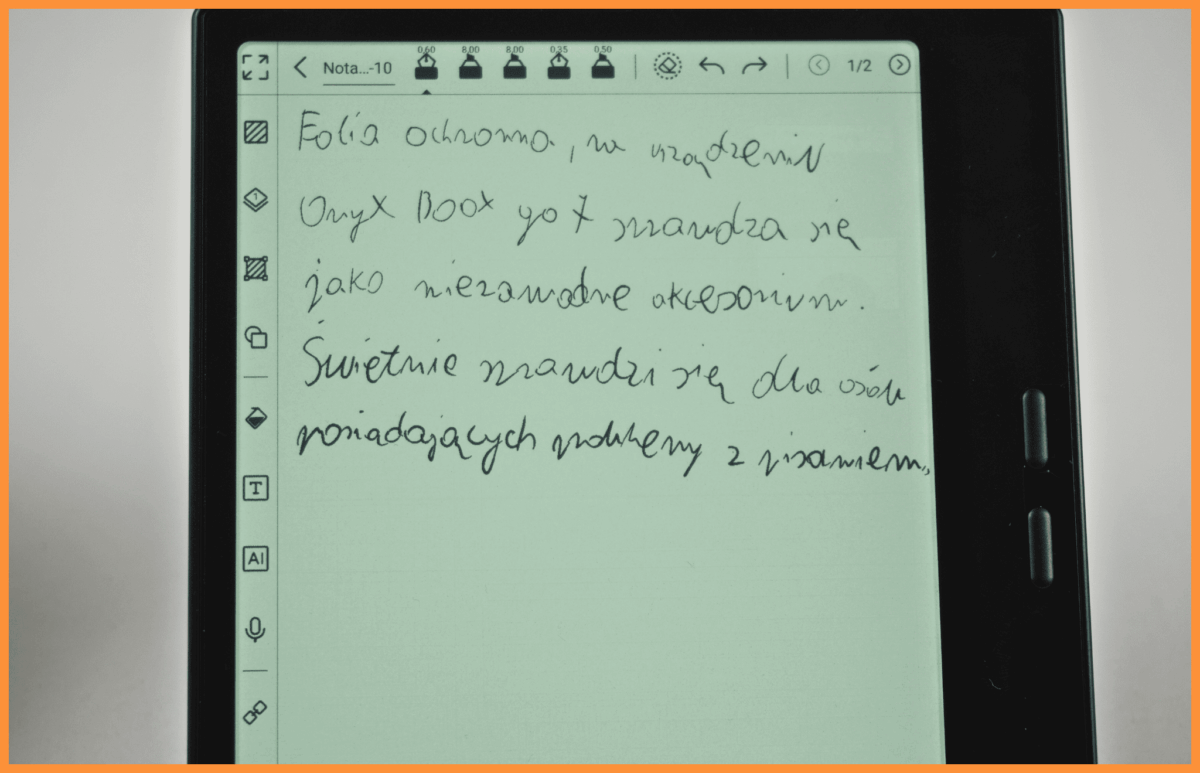 Nota...-10
0,60 8,00 8,00 0,35 0,50
1/2
Folia ochronna, w urządzeniu
Onyx Boox go 7 sprawdza się
jako niezawodne akcesorium.
Świetnie sprawdzi się dla osób
posiadających problemy z pisaniem.
1
T
AI